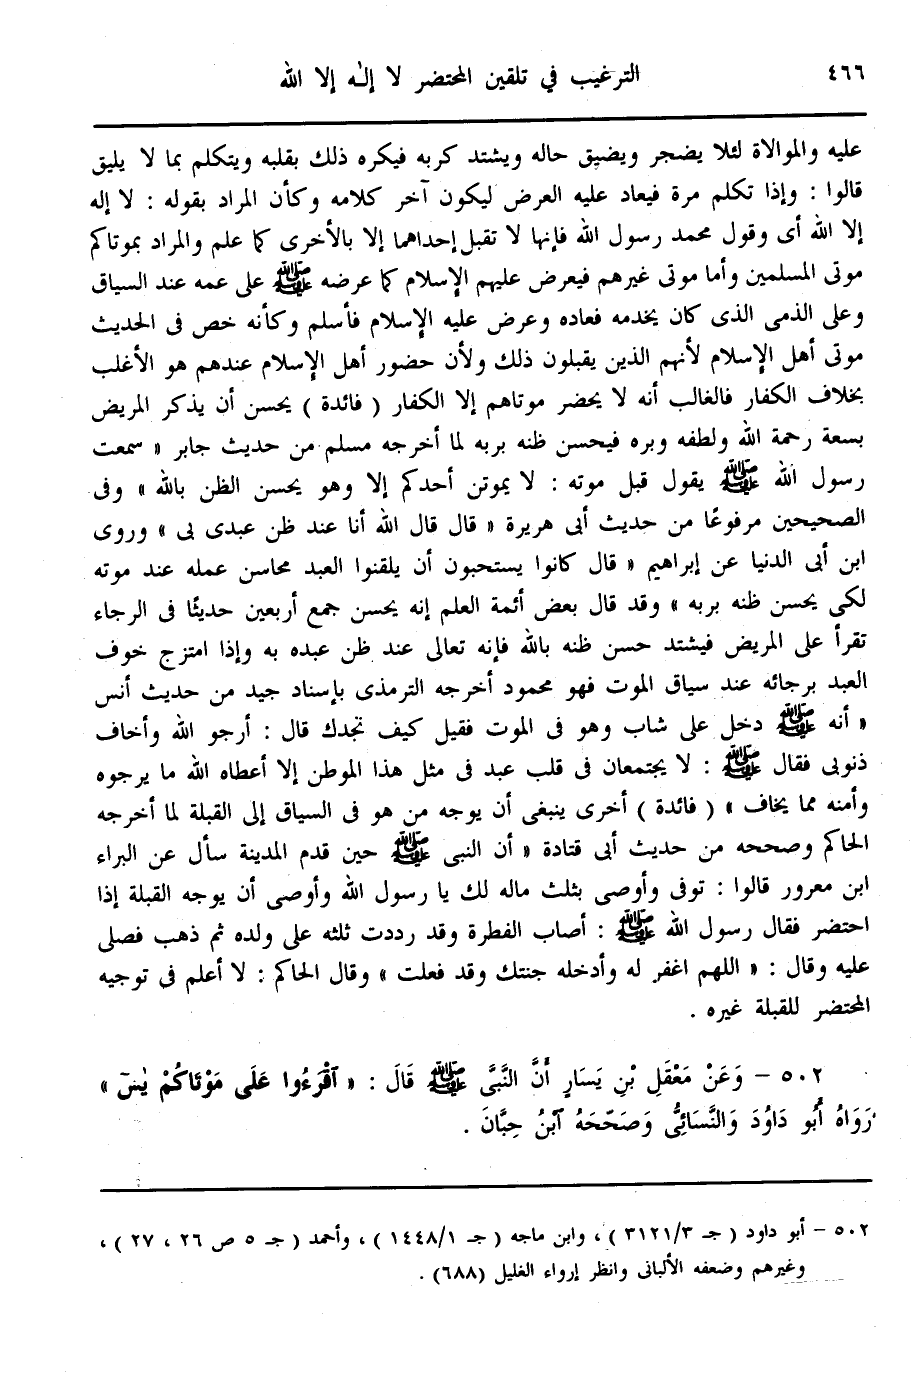 ٤٦٦
الترغيب في تلقين المحتضر لا إله إلا الله
عليه والموالاة لئلا يضجر ويضيق حاله ويشتد كربه فيكره ذلك بقلبه ويتكلم بما لا يليق
قالوا : وإذا تكلم مرة فيعاد عليه العرض ليكون آخر كلامه وكأن المراد بقوله : لا إله
إلا الله أى وقول محمد رسول الله فإنها لا تقبل إحداهما إلا بالأخرى كما علم والمراد بموتاكم
موتى المسلمين وأما موتى غيرهم فيعرض عليهم الإسلام كما عرضه ﷺ على عمه عند السياق
وعلى الذمى الذى كان يخدمه فعاده وعرض عليه الإسلام فأسلم وكأنه خص فى الحديث
موتى أهل الإسلام لأنهم الذين يقبلون ذلك ولأن حضور أهل الإسلام عندهم هو الأغلب
بخلاف الكفار فالغالب أنه لا يحضر موتاهم إلا الكفار ( فائدة ) يحسن أن يذكر المريض
بسعة رحمة الله ولطفه وبره فيحسن ظنه بربه لما أخرجه مسلم من حديث جابر « سمعت
رسول الله ﷺ يقول قبل موته : لا يموتن أحدكم إلا وهو يحسن الظن بالله » وفى
الصحيحين مرفوعًا من حديث أبى هريرة « قال قال الله أنا عند ظن عبدى بى » وروى
ابن أبى الدنيا عن إبراهيم « قال كانوا يستحبون أن يلقنوا العبد محاسن عمله عند موته
لكى يحسن ظنه بربه » وقد قال بعض أئمة العلم إنه يحسن جمع أربعين حديثًا فى الرجاء
تقرأ على المريض فيشتد حسن ظنه بالله فإنه تعالى عند ظن عبده به وإذا امتزج خوف
العبد برجائه عند سياق الموت فهو محمود أخرجه الترمذى بإسناد جيد من حديث أنس
« أنه ﷺ دخل على شاب وهو فى الموت فقيل كيف تجدك قال : أرجو الله وأخاف
ذنوبى فقال ﷺ : لا يجتمعان فى قلب عبد فى مثل هذا الموطن إلا أعطاه الله ما يرجوه
وأمنه مما يخاف » ( فائدة ) أخرى ينبغى أن يوجه من هو فى السياق إلى القبلة لما أخرجه
الحاكم وصححه من حديث أبى قتادة « أن النبى ﷺ حين قدم المدينة سأل عن البراء
ابن معرور قالوا : توفى وأوصى بثلث ماله لك يا رسول الله وأوصى أن يوجه القبلة إذا
احتضر فقال رسول الله ﷺ : أصاب الفطرة وقد رددت ثلثه على ولده ثم ذهب فصلى
عليه وقال : « اللهم اغفر له وأدخله جنتك وقد فعلت » وقال الحاكم : لا أعلم فى توجيه
المحتضر للقبلة غيره .
٥٠٢ – وَعَنْ مَعْقَلِ بْنِ يَسَارٍ أَنَّ النَّبَّى ﷺ قَالَ : « آقْرَءُوا عَلَى مَوْتَاكُمْ يٰسٓ »
رَوَاهُ أَبُو دَاوُدَ وَالنَّسَائِىُّ وَصَحّحَهُ آبْنُ حِبَّانَ .
٥٠٢ – أبو داود ( جـ ٣١٢١/٣ ) ، وابن ماجه ( جـ ١٤٤٨/١ ) ، وأحمد ( جـ ٥ ص ٢٦ ، ٢٧ ) ،
وغيرهم وضعفه الألبانى وانظر إرواء الغليل (٦٨٨) .